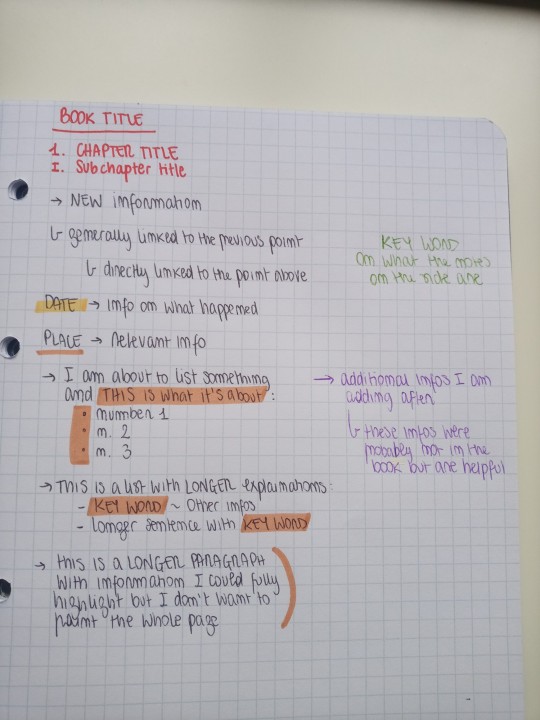 BOOK TITLE
1. CHAPTER TITLE
I. Subchapter title
→ NEW information
↳ generally linked to the previous point
↳ directly linked to the point above
KEY WORD
on what the notes
on the side are
DATE → info on what happened
PLACE → relevant info
→ I am about to list something
and THIS IS what it's about:
• number 1
• n. 2
• n. 3
→ additional infos I am
adding after
↳ these infos were
probably not in the
book but are helpful
→ THIS IS a list with LONGER explainations:
- KEY WORD ~ Other infos
- Longer sentence with KEY WORD
→ THIS IS a LONGER PARAGRAPH
with information I could fully
highlight but I don't want to
paint the whole page